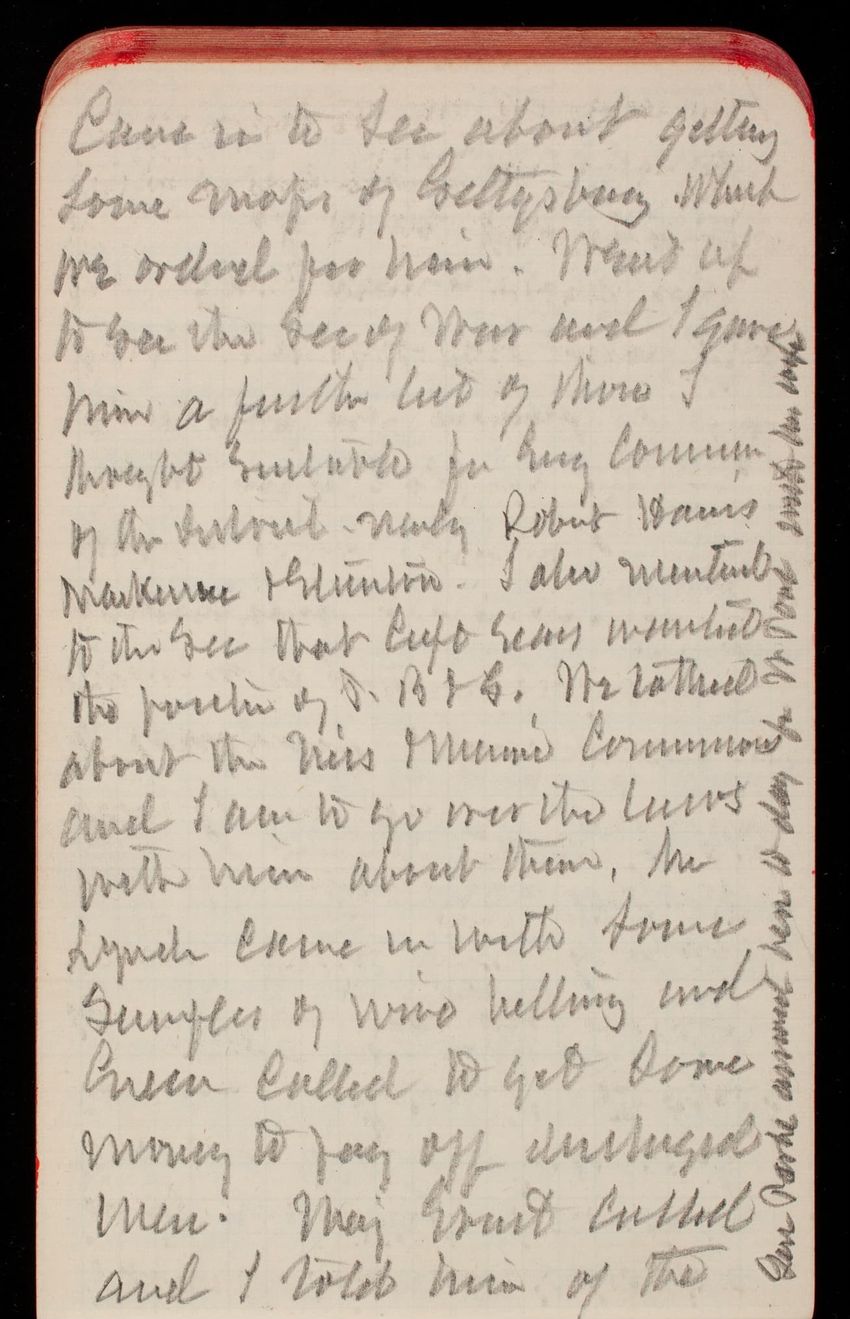 Came in to see about getting
some maps of Gettysburg which
we ordered for him. Went up
to see the Sec of War and I gave
him a further list of those I
thought suitable for Eng Commr
of the District. namely Robert Davis
Mackenzie &
I also mentioned
to the Sec that Capt Sears wanted
the position of S. B & G. We talked
about the Miss & Commissions
and I am to go over the laws
with him about them. Mr
Lynch came in with some
samples of wire netting and
Green called to get some
money to pay off discharged
men. Maj called
and I told him of the
Gen Parke arrived here to day